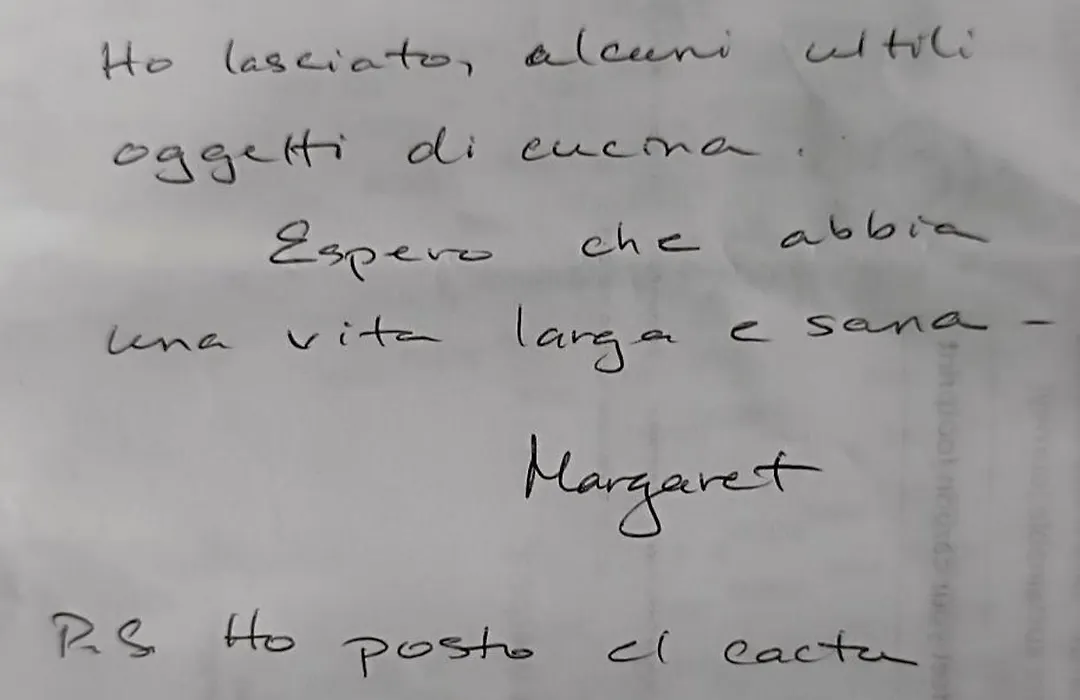 Ho lasciato, alcuni ultili
oggetti di cucina.
Espero che abbia
una vita larga e sana -
Margaret
P.S. Ho posto el cactu